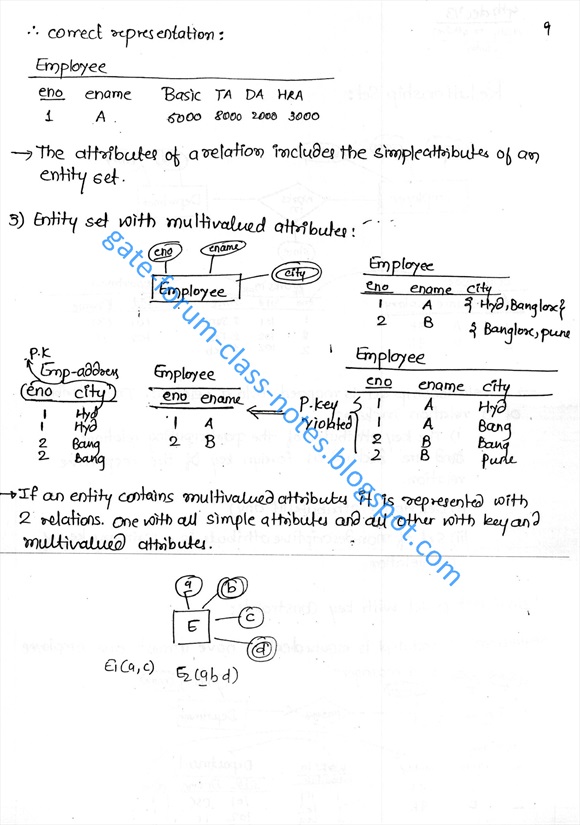 ∴ correct representation: 9
Employee
eno ename Basic TA DA HRA
1 A 6000 8000 2000 3000
→ The attributes of a relation includes the simple attributes of an
entity set.
3) Entity set with multivalued attributes:
eno ename city
Employee
Employee
eno ename city
1 A { Hyd, Banglore {
2 B { Banglore, pune
P.K
Emp-address
(eno city)
1 Hyd
1 Hyd
2 Bang
2 Bang
Employee
eno ename
1 A
2 B
P.key
violated
Employee
eno ename city
1 A Hyd
1 A Bang
2 B Bang
2 B Pune
→ If an entity contains multivalued attributes it is represented with
2 relations. one with all simple attributes and all other with key and
multivalued attributes.
a b
E c
d
E1(a,c) E2(a b d)
gate-forum-class-notes.blogspot.com